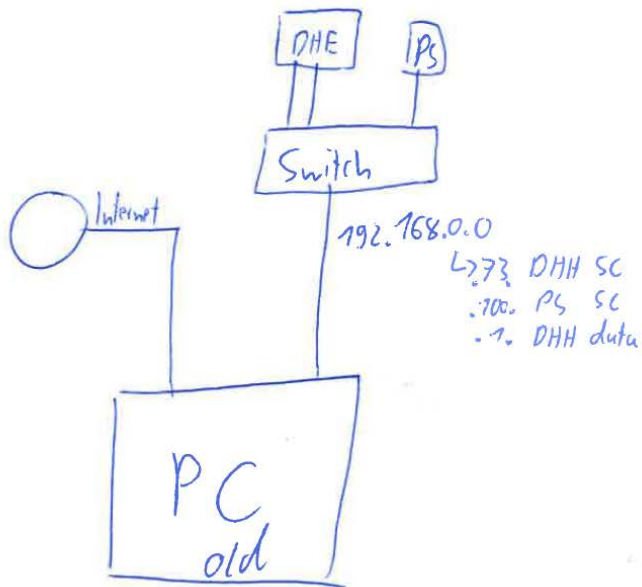 DHE
PS
Switch
Internet
192.168.0.0
↳.73. DHH SC
.100. PS SC
.1. DHH data
PC
old